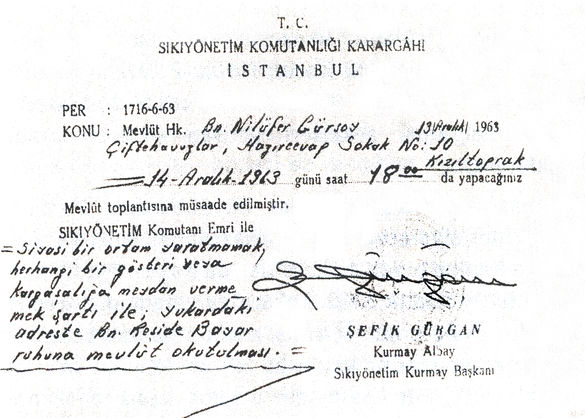 T. C.
SIKIYÖNETİM KOMUTANLIĞI KARARGÂHI
İSTANBUL
PER : 1716-6-63
KONU : Mevlüt Hk. Bn. Nilüfer Gürsoy 13/Aralık/1963
Çiftehavuzlar, Hazırcevap Sokak No: 10
Kızıltoprak
14-Aralık-1963 günü saat 18⁰⁰ da yapacağınız
Mevlût toplantısına müsaade edilmiştir.
SIKIYÖNETİM Komutanı Emri ile
= Siyasi bir ortam yaratmamak,
herhangi bir gösteri veya
kargaşalığa meydan verme
mek şartı ile; yukardaki
adreste Bn. Reside Bayar
ruhuna mevlût okutulması. =
ŞEFİK GÜRGAN
Kurmay Albay
Sıkıyönetim Kurmay Başkanı